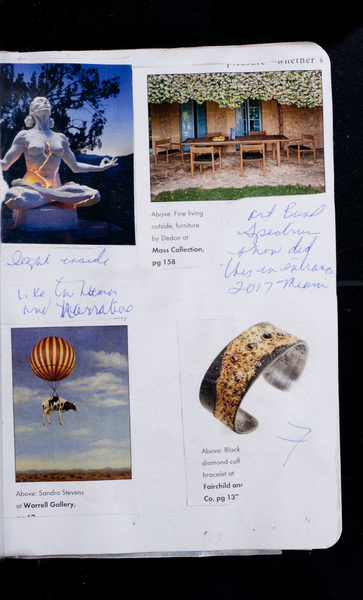 pleasure whether s
Above: Fine living
outside; furniture
by Dedon at
Moss Collection,
pg 158
Art Basel
Spectrum
show did
this in entrance
2017 Miami
light inside
Like the
and Narrative
Above: Black
diamond cuff
bracelet at
Fairchild and
Co, pg 13
7
Above: Sandra Stevens
at Worrell Gallery,